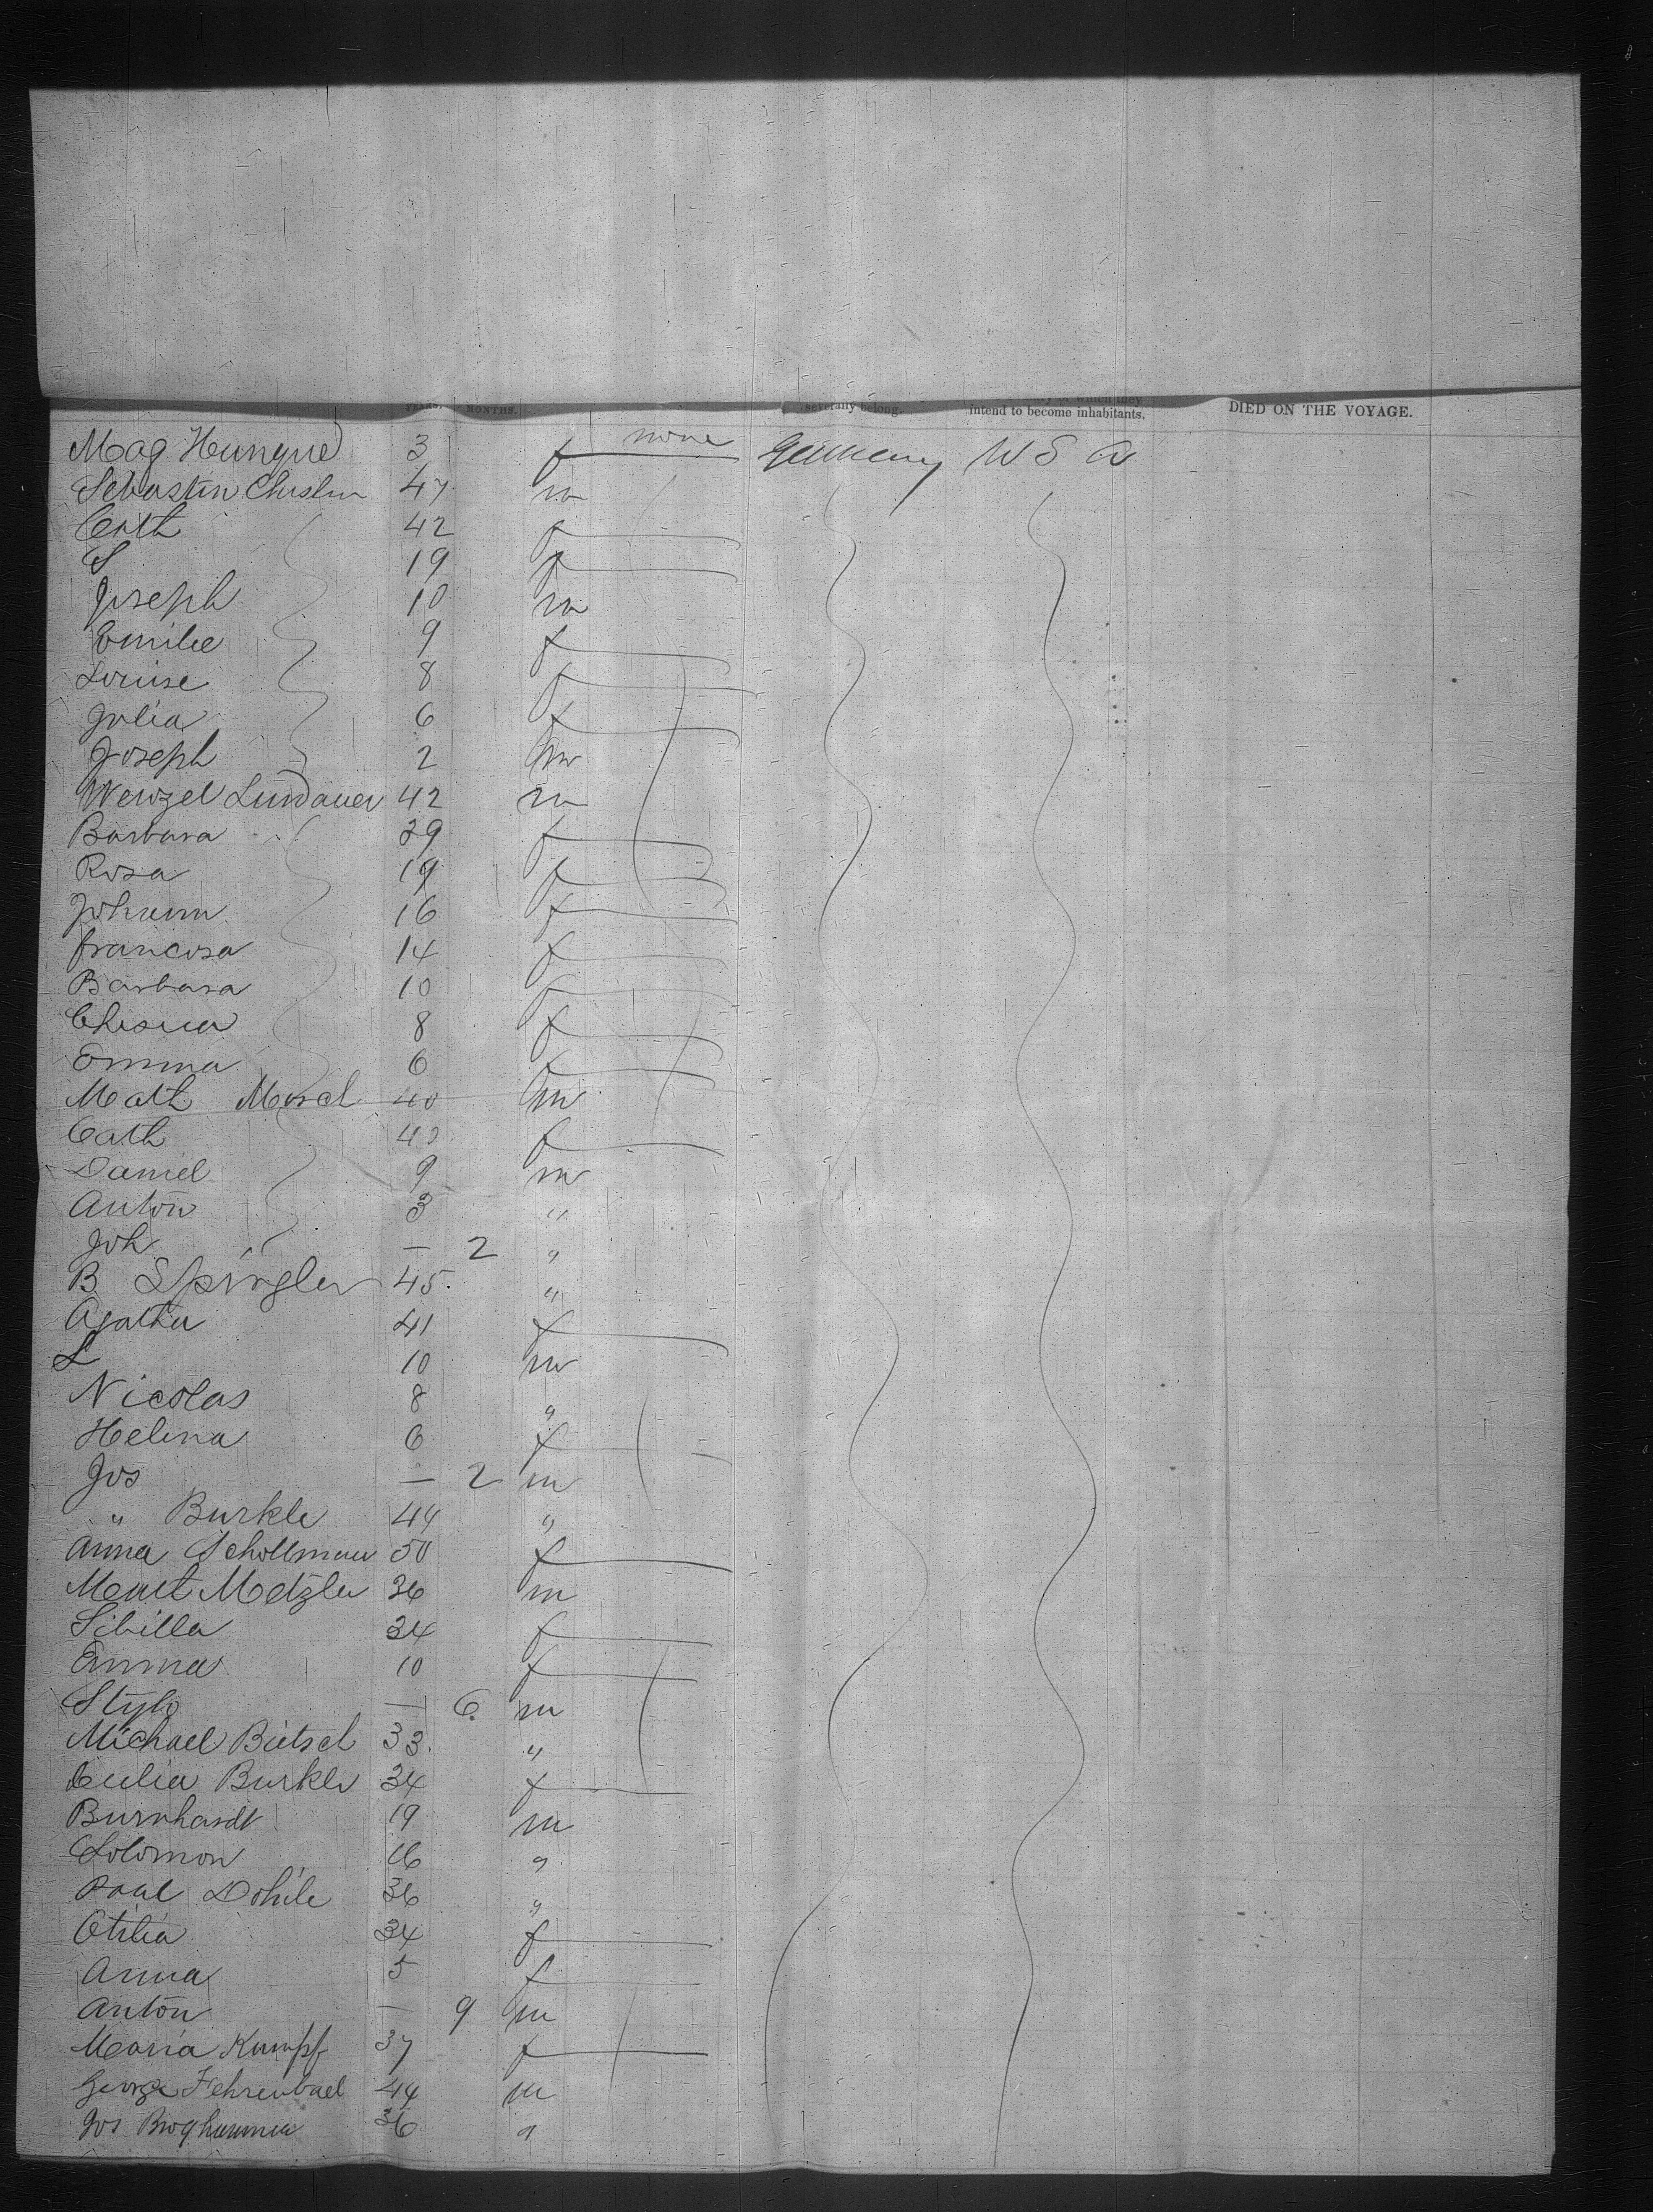 YEARS. MONTHS. severally belong. of which they intend to become inhabitants. DIED ON THE VOYAGE.
Mag 3 f none Germany U S A
Sebastin 47 m
Cath 42 f
S 19 f
Joseph 10 m
Emilie 9 f
Louise 8 f
Julia 6 f
Joseph 2 m
Wenzel Lindauer 42 m
Barbara 39 f
Rosa 19 f
Johann 16 f
Francosa 14 f
Barbara 10 f
8 f
Emma 6 f
Math 40 m
Cath 40 f
Daniel 9 m
Anton 3 "
Joh — 2 "
B Spingler 45 "
Agatha 41 f
L 10 m
Nicolas 8 "
Helena 6 f
Jos — 2 m
" Burkle 44 "
Anna 50 f
Mart Metzler 36 m
Sibilla 34 f
Emma 10 f
— 6 m
Michael 33 "
Burkle 34 f
Burnhardt 19 m
Solomon 16 "
Paul Dohile 36 "
Otilia 34 f
Anna 5 f
Anton — 9 m
Maria Kumpf 37 f
George 44 m
Jos 36 "